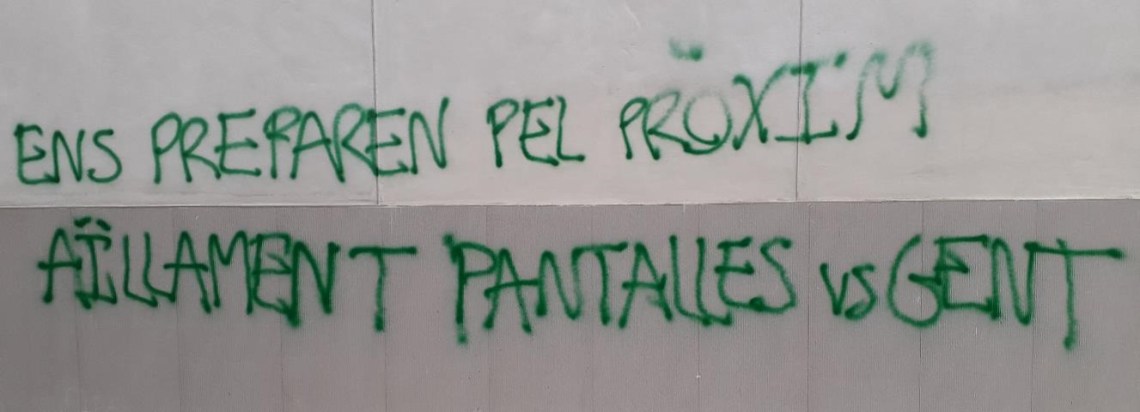 ENS PREPAREN PEL PRÒXIM
AÏLLAMENT PANTALLES VS GENT